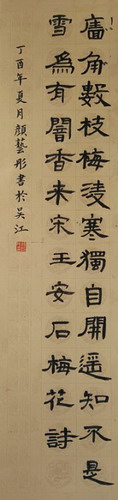 廧角數枝梅凌寒獨自開遥知不是
雪為有闇香来宋王安石梅花詩
丁酉年夏月顔藝彤書於吴江